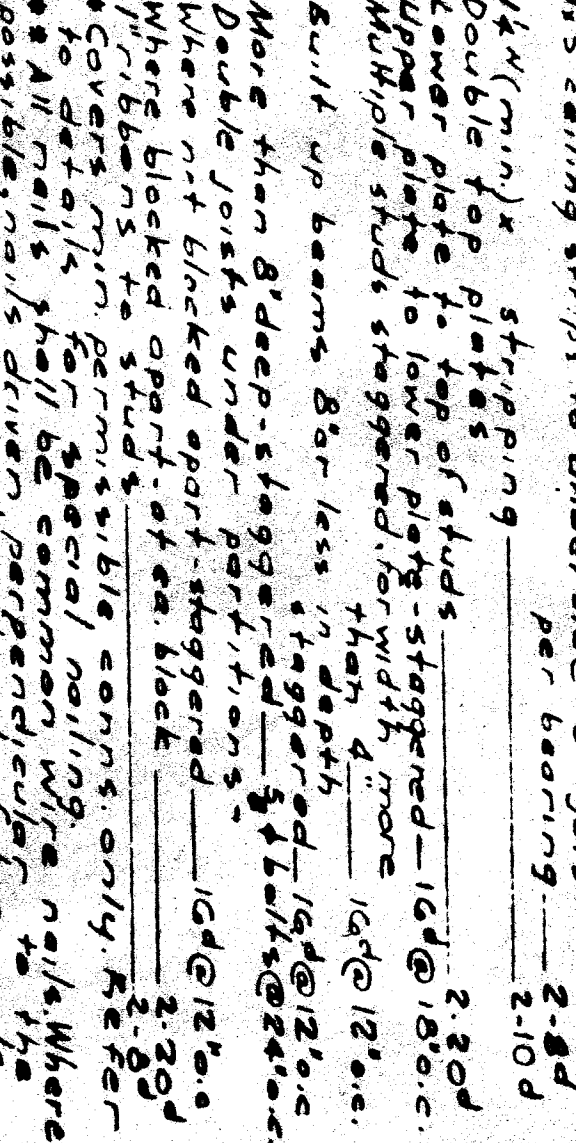 per bearing. — 2-8d
1x4 (min.) x stripping — 2-10d
Double top plates
Lower plate to top of studs — 2-20d
Upper plate to lower plate-staggered — 16d@18"o.c.
Multiple studs staggered, for width more
than 4" — 16d@12"o.c.
Built up beams 8"or less in depth
staggered — 16d@12"o.c
More than 8"deep-staggered — bolts@24"o.c.
Double joists under partitions-
Where not blocked apart-staggered — 16d@12"o.c
Where blocked apart-at ea. block — 2-20d
1" ribbons to studs — 2-8d
* Covers min. permissible conns. only. Refer
to details for special nailing.
** All nails shall be common wire nails. Where
possible, nails driven perpendicular to the